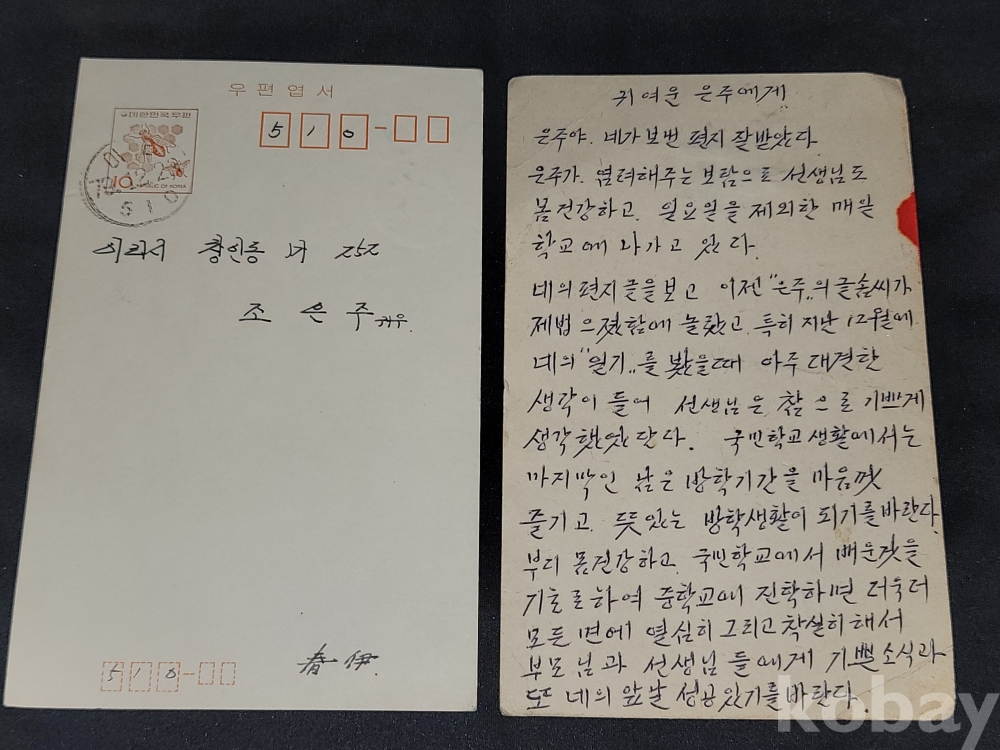 우편엽서
대한민국우편
510-
10
REPUBLIC OF KOREA
510
이리시 창인동
조은주 귀하
春伊
510-
귀여운 은주에게
은주야. 네가 보낸 편지 잘받았다.
은주가. 염려해주는 보람으로 선생님도
몸건강하고. 일요일을 제외한 매일
학교에 나가고 있다.
네의 편지글을 보고 이젠 "은주"의 글솜씨가
제법 으젓함에 놀랐고. 특히 지난 12월에
네의 "일기"를 봤을때 아주 대견한
생각이 들어 선생님은 참으로 기쁘게
생각했었단다. 국민학교 생활에서는
마지막인 남은 방학기간을 마음껏
즐기고. 뜻있는 방학생활이 되기를바란다.
부디 몸건강하고. 국민학교에서 배운것을
기초로하여 중학교에 진학하면 더욱더
모든 면에 열심히 그리고 착실히 해서
부모님과 선생님들에게 기쁜소식과
또 네의 앞날 성공있기를바란다.
kobay